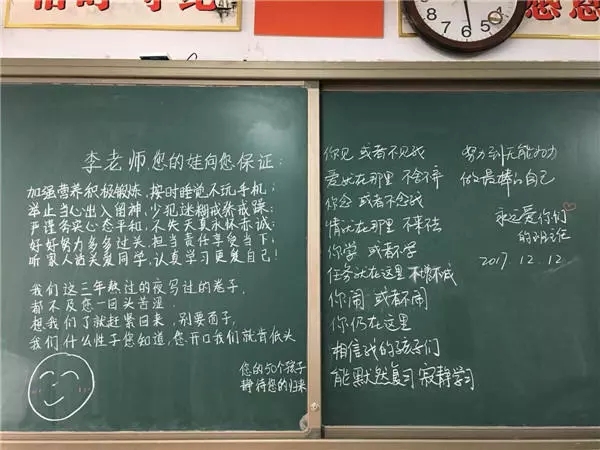 李老师您的娃向您保证：
加强营养积极锻炼，按时睡觉不玩手机；
举止当心出入留神，少犯迷糊戒骄戒躁；
严谨务实心态平和，不失天真永怀赤诚；
好好努力多多过关，担当责任享受当下；
听家人话关爱同学，认真学习更爱自己！
我们这三年熬过的夜写过的卷子，
都不及您一回头苦涩，
想我们了就赶紧回来，别要面子，
我们什么性子您知道，您开口我们就肯低头
您的50个孩子
静待您的归来
你见 或者不见我
爱就在那里 不舍不弃
你念 或者不念我
情就在那里 不来不去
你学 或者不学
任务就在这里 不增不减
你闹 或者不闹
你仍在这里
相信我的孩子们
能默然复习 寂静学习
努力到无能为力
做最棒的自己
永远爱你们
的
2017.12.12